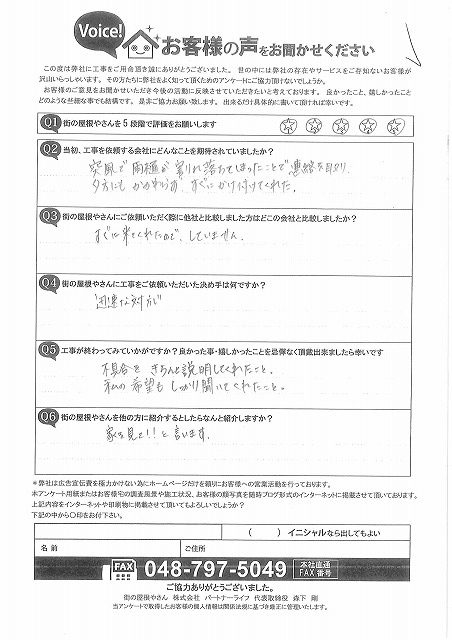 Voice!
お客様の声をお聞かせください
この度は弊社に工事をご用命頂き誠にありがとうございました。世の中には弊社の存在やサービスをご存知ないお客様が
沢山いらっしゃいます。その方たちに弊社をよく知って頂くためのアンケートにご協力頂けないでしょうか?
お客様のご意見をお聞かせいただき今後の活動に反映させていただきたいと考えております。良かったこと、嬉しかったこと
どのような些細な事でも結構です。是非ご協力お願い致します。出来るだけ具体的に書いて頂ければ幸いです。
Q1 街の屋根やさんを5段階で評価をお願いします
Q2 当初、工事を依頼する会社にどんなことを期待されていましたか?
突風で雨樋が割れ落ちてしまったことで連絡を取り、
夕方にもかかわらず すぐにかけ付けてくれた。
Q3 街の屋根やさんにご依頼いただく際に他社と比較しました方はどこの会社と比較しましたか?
すぐに来てくれたので、していません。
Q4 街の屋根やさんに工事をご依頼いただいた決め手は何ですか?
迅速な対応
Q5 工事が終わってみていかがですか?良かった事・嬉しかったことを忌憚なく頂戴出来ましたら幸いです
不具合を きちんと説明してくれたこと。
私の希望も しっかり聞いてくれたこと。
Q6 街の屋根やさんを他の方に紹介するとしたらなんと紹介しますか?
家を見て!!と言います。
*弊社は広告宣伝費を極力かけない為にホームページだけを頼りにお客様への営業活動を行っております。
本アンケート用紙またはお客様宅の調査風景や施工状況、お客様の顔写真を随時ブログ形式のインターネットに掲載させて頂いております。
上記内容をインターネットや印刷物に掲載させて頂いてもよろしいでしょうか?
下記の中から〇印をお付下さい。
( )イニシャルなら出してもよい
名前
ご住所
FAX 048-797-5049 本社直通FAX番号
ご協力ありがとうございました。
街の屋根やさん 株式会社 パートナーライフ 代表取締役 森下 剛
当アンケートで取得したお客様の個人情報は関係法規に基づき厳正に管理いたします。